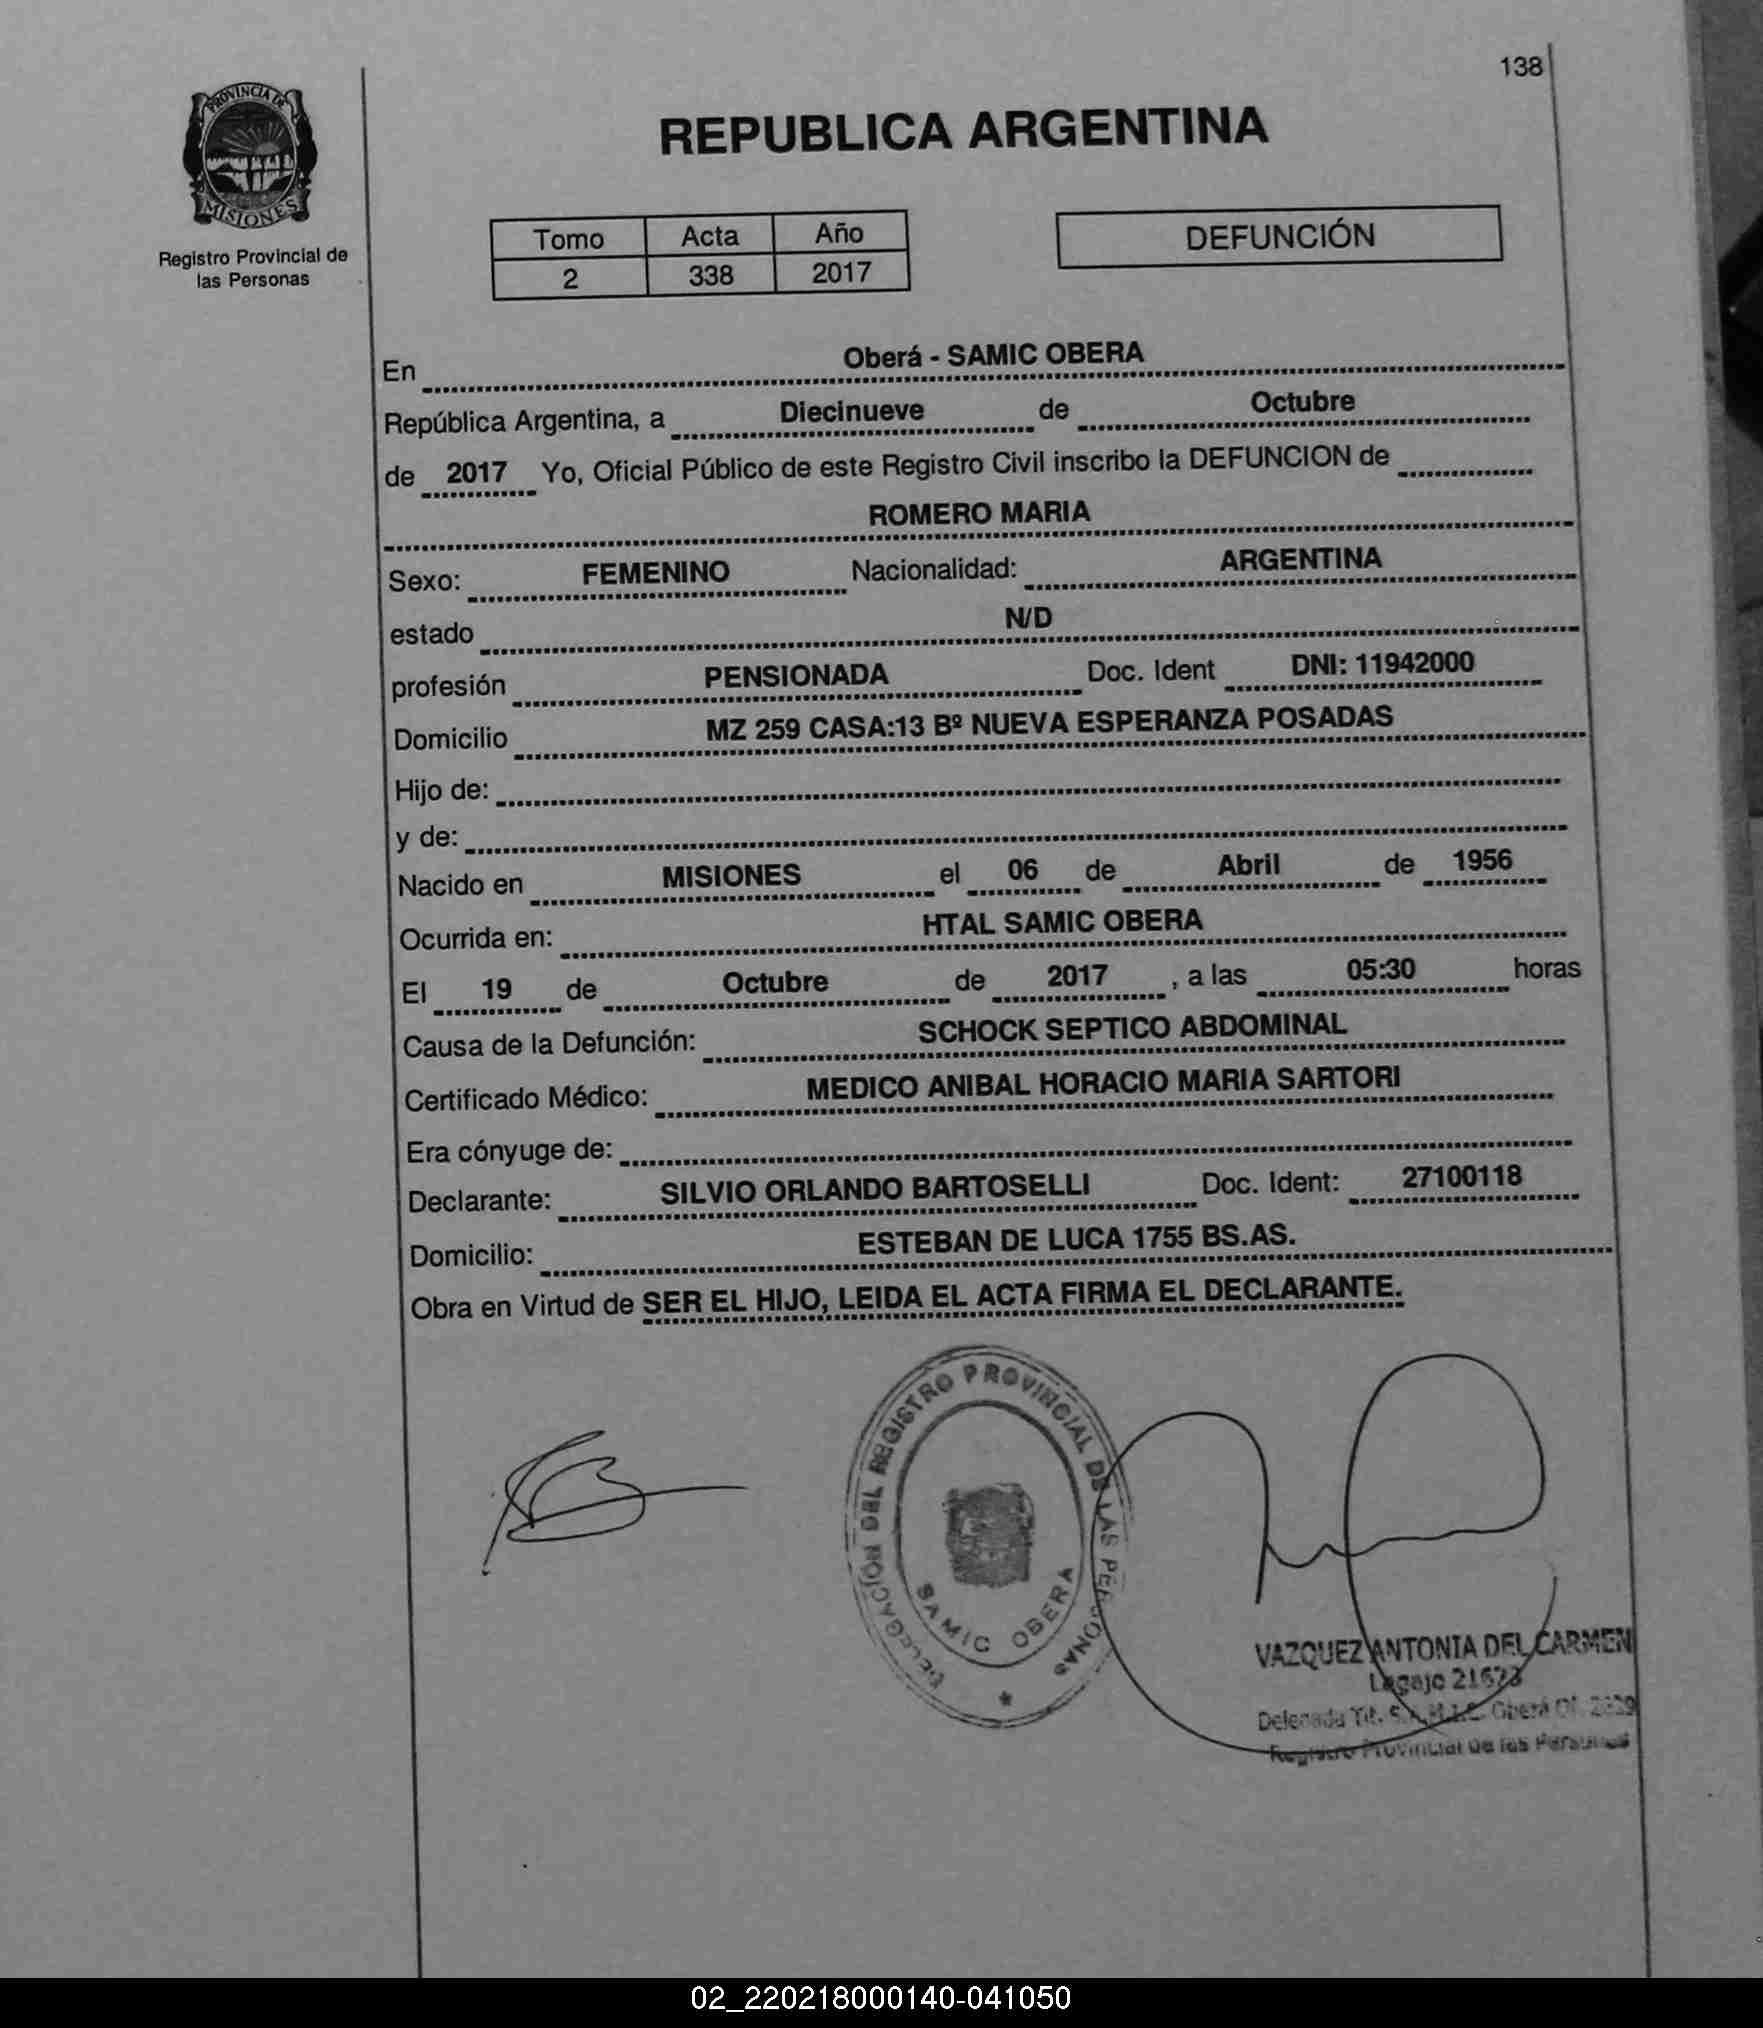 138
PROVINCIA DE
MISIONES
Registro Provincial de
las Personas
REPUBLICA ARGENTINA
Tomo Acta Año
2 338 2017
DEFUNCIÓN
En Oberá - SAMIC OBERA
República Argentina, a Diecinueve de Octubre
de 2017 Yo, Oficial Público de este Registro Civil inscribo la DEFUNCION de
ROMERO MARIA
Sexo: FEMENINO Nacionalidad: ARGENTINA
estado N/D
profesión PENSIONADA Doc. Ident DNI: 11942000
Domicilio MZ 259 CASA:13 Bº NUEVA ESPERANZA POSADAS
Hijo de:
y de:
Nacido en MISIONES el 06 de Abril de 1956
Ocurrida en: HTAL SAMIC OBERA
El 19 de Octubre de 2017 , a las 05:30 horas
Causa de la Defunción: SCHOCK SEPTICO ABDOMINAL
Certificado Médico: MEDICO ANIBAL HORACIO MARIA SARTORI
Era cónyuge de:
Declarante: SILVIO ORLANDO BARTOSELLI Doc. Ident: 27100118
Domicilio: ESTEBAN DE LUCA 1755 BS.AS.
Obra en Virtud de SER EL HIJO, LEIDA EL ACTA FIRMA EL DECLARANTE.
DELEGACIÓN DEL REGISTRO PROVINCIAL DE LAS PERSONAS
SAMIC OBERA
VAZQUEZ ANTONIA DEL CARMEN
Legajo
Delegada Tit. S.A.M.I.C. Oberá
Registro Provincial de las Personas
02_220218000140-041050